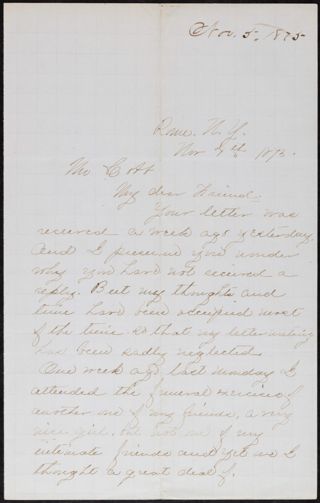 Nov. 5, 1875
Rome. N. Y.
Nov 9th 1875.
Mr Cott
My dear Friend:
Your letter was
received a week ago yesterday
and I presume you wonder
why you have not received a
reply. But my thoughts and
time have been occupied most
of the time so that my letter writing
has been sadly neglected
One week ago last Monday I
attended the funeral exercises of
another one of my friends, a very
nice girl. but not one of my
intimate friends and yet one I
thought a great deal of.